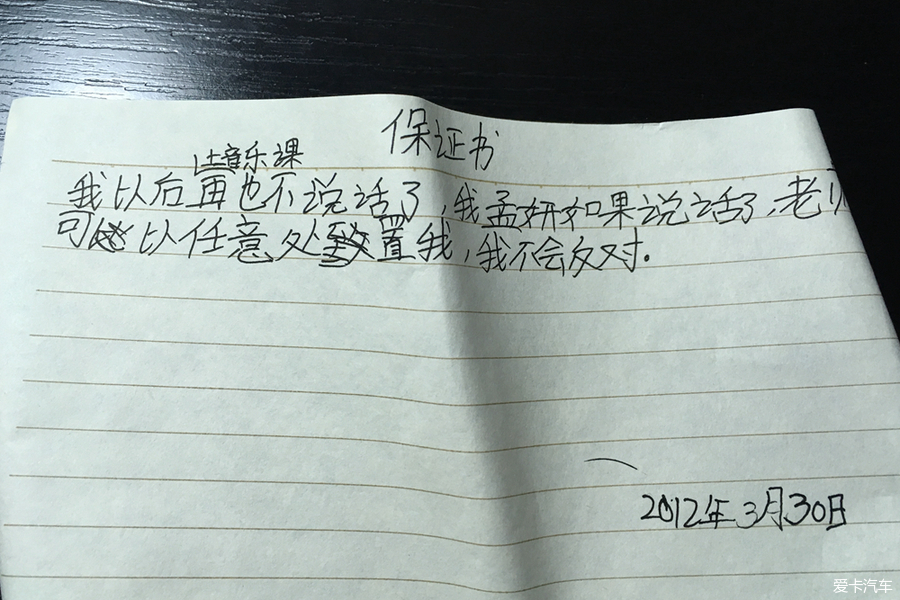 保证书
上音乐课
我以后再也不说话了,我孟妍如果说话了,老师
可以任意处置我,我不会反对.
2012年3月30日
爱卡汽车